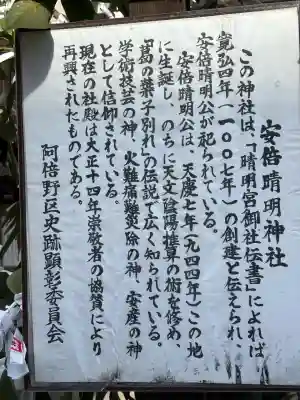 安倍晴明神社
この神社は、「晴明宮御社伝書」によれば
寛弘四年(一〇〇七年)の創建と伝えられ
安倍晴明公が祀られている。
安倍晴明公は、天慶七年(九四四年)この地
に生誕し、のちに天文陰陽推算の術を修め、
「葛の葉子別れ」の伝説で広く知られている。
学術技芸の神、火難痛難災除の神、安産の神
として信仰されている。
現在の社殿は大正十四年崇敬者の協賛により
再興されたものである。
阿倍野区史跡顕彰委員会